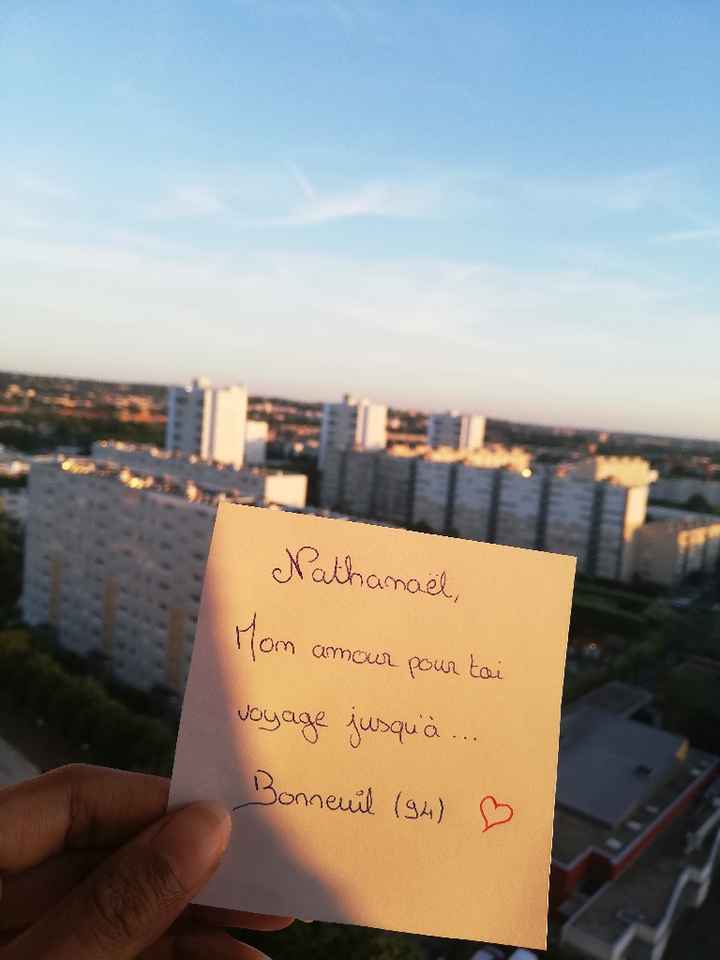 Nathanaël,
Mon amour pour toi
voyage jusqu'à ...
Bonneuil (94)